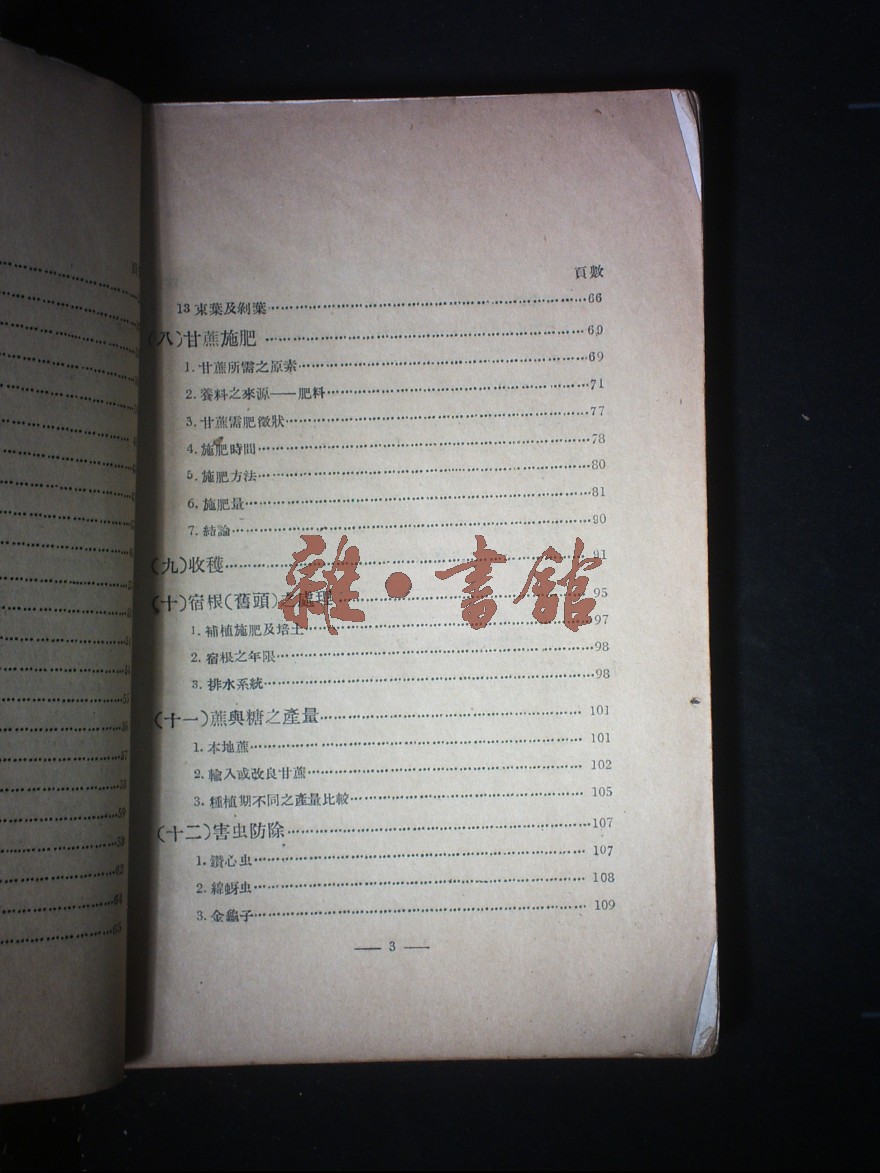 頁數
13 束葉及剝葉……66
(八)甘蔗施肥……69
1. 甘蔗所需之原素……69
2. 養料之來源——肥料……71
3. 甘蔗需肥徵狀……77
4. 施肥時間……78
5. 施肥方法……80
6. 施肥量……81
7. 結論……90
(九)收穫……91
(十)宿根(舊頭)之處理……95
1. 補植施肥及培土……97
2. 宿根之年限……98
3. 排水系統……98
(十一)蔗與糖之產量……101
1. 本地蔗……101
2. 輸入或改良甘蔗……102
3. 種植期不同之產量比較……105
(十二)害虫防除……107
1. 鑽心虫……107
2. 綿蚜虫……108
3. 金龜子……109
— 3 —
雜·書館